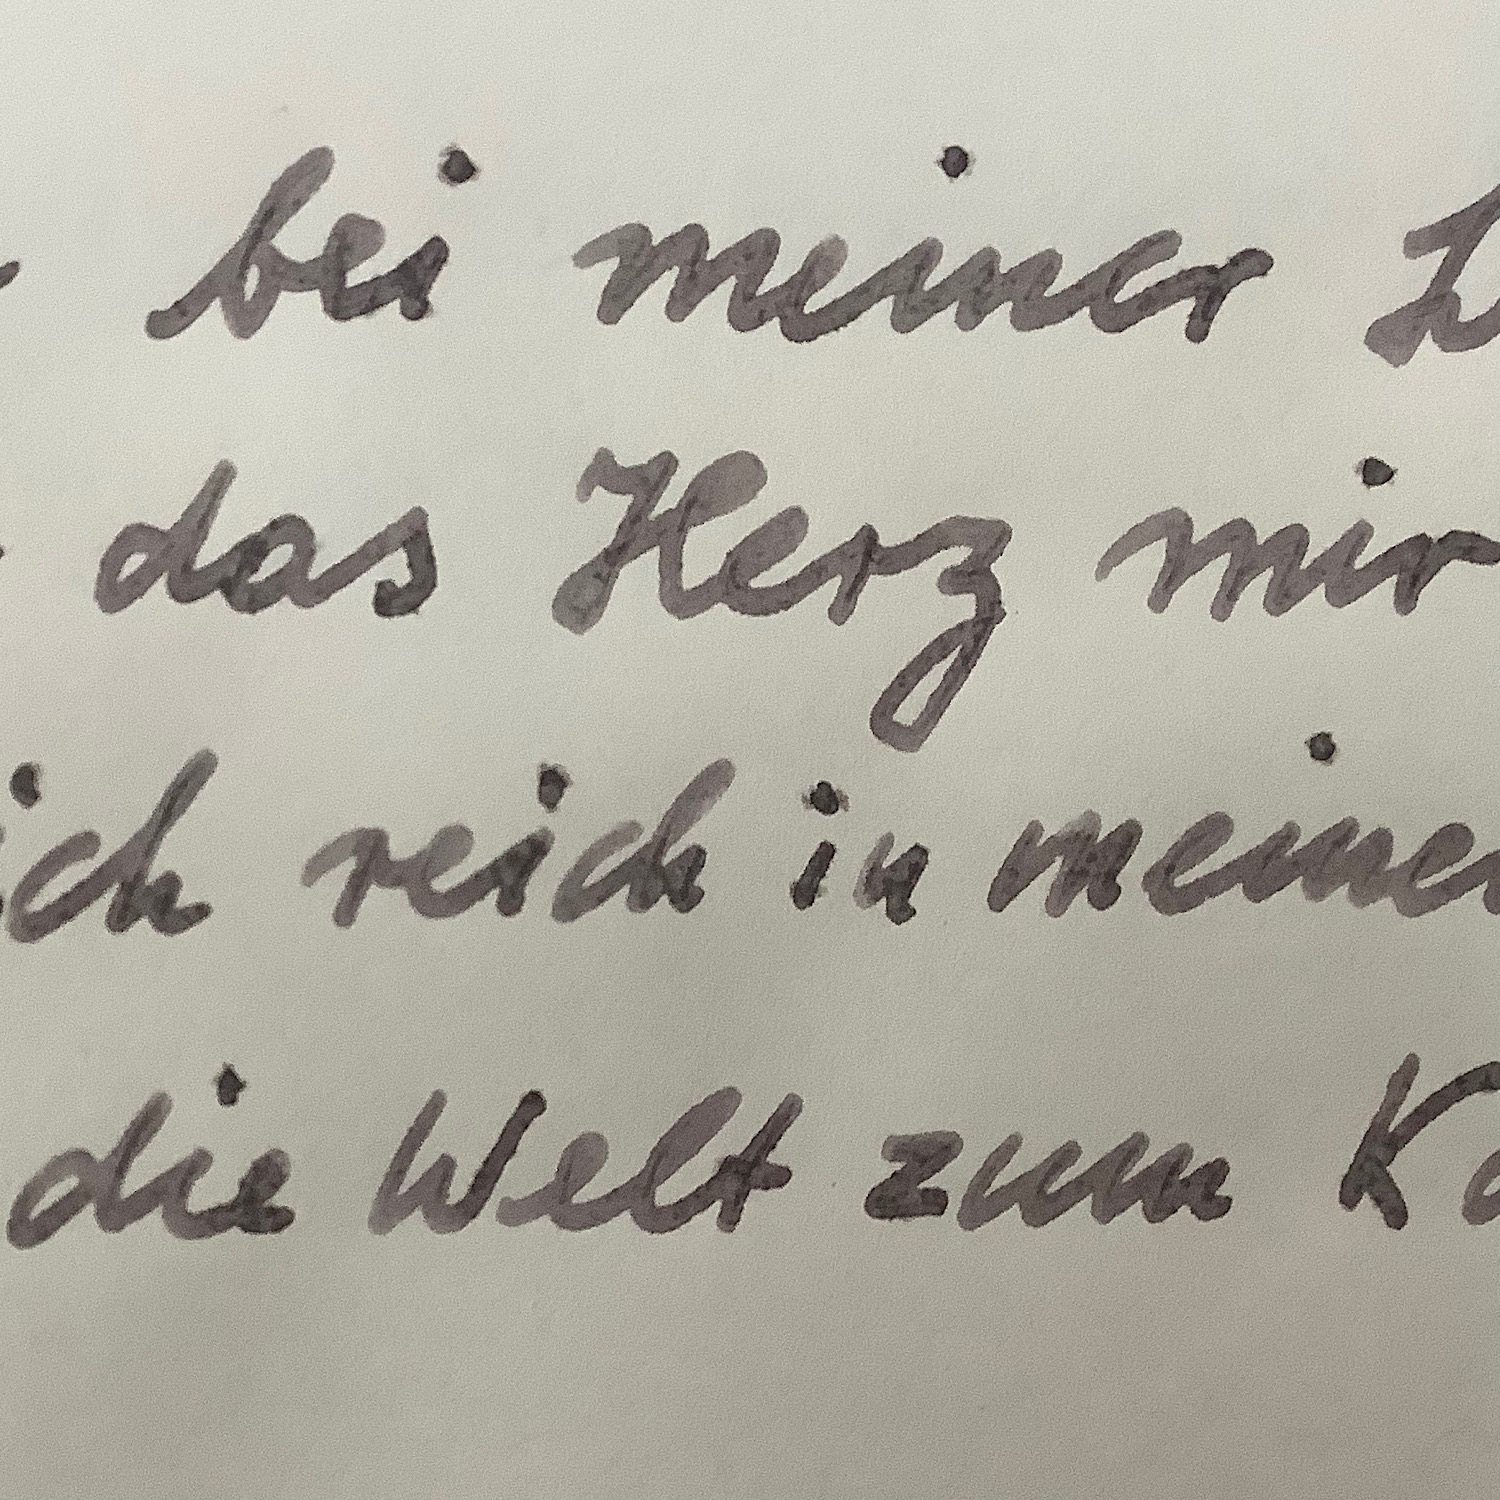 bei meiner
das Herz mir
ich reich in meine
die Welt zum